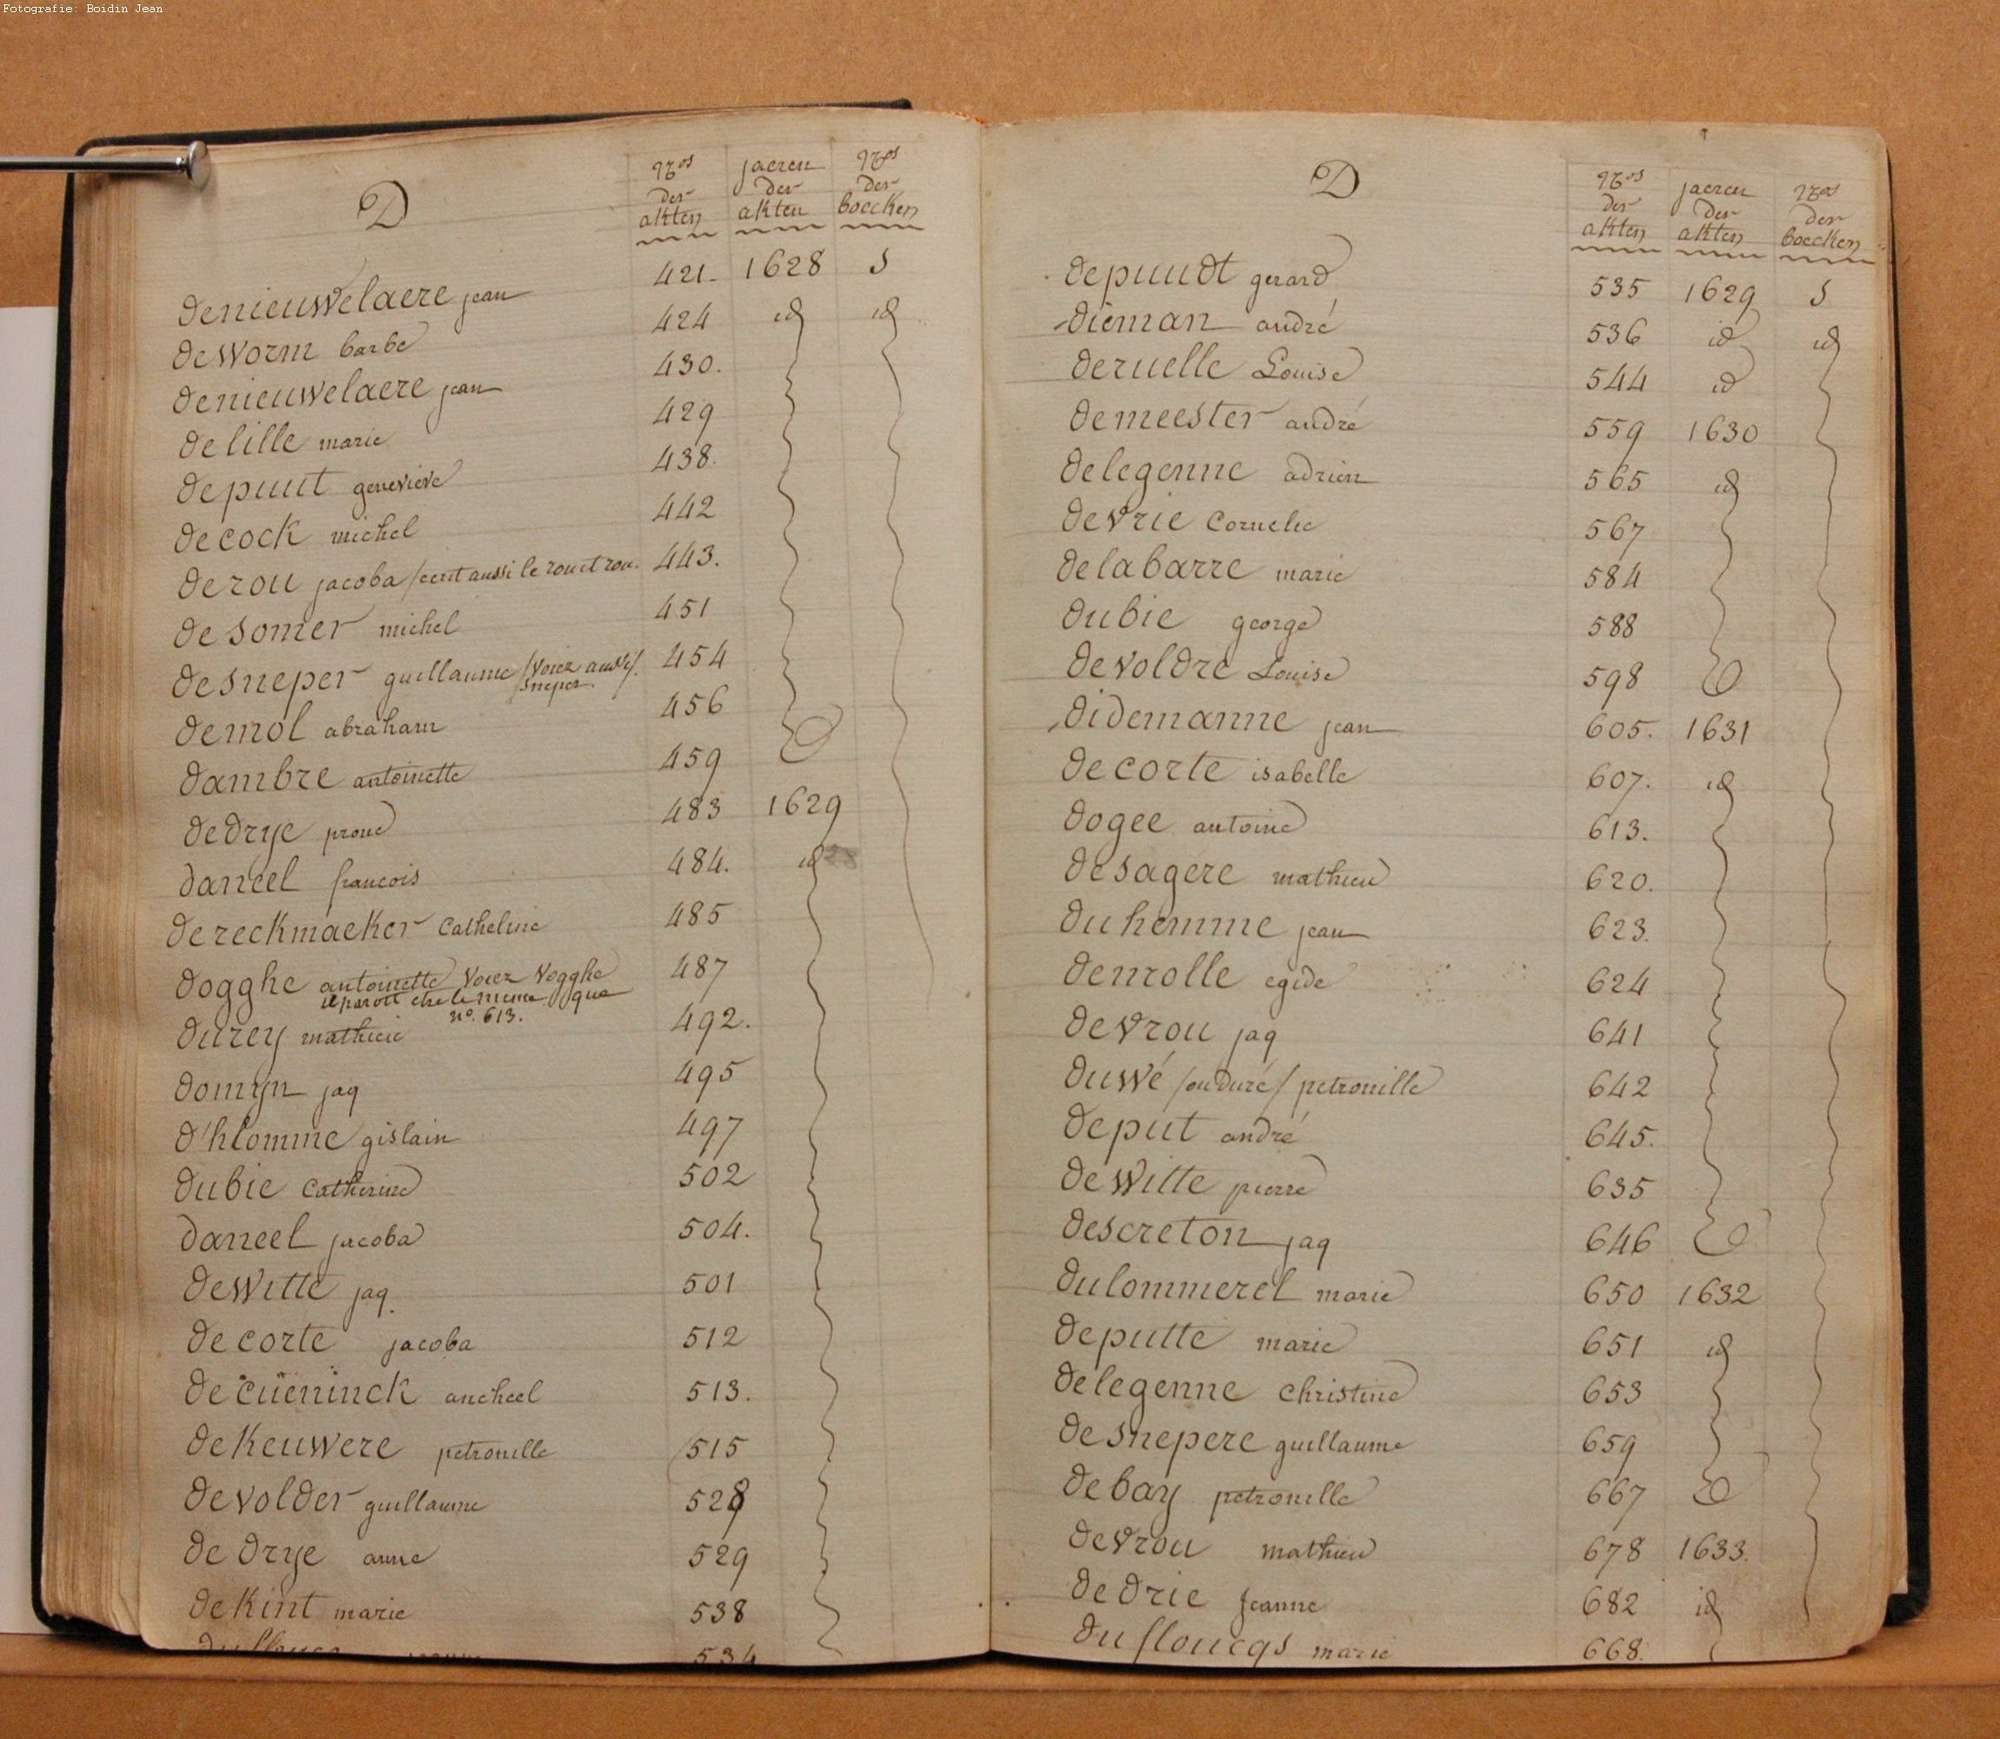 Fotografie: Boidin Jean
D
Nros der akten
jaeren der akten
Nros der boecken
denieuwelaere jean 421. 1628 5
deworm barbe 424 id id
denieuwelaere jean 430.
delille marie 429
depuut genevieve 438.
decock michel 442
derou jacoba /ecrit aussi le rou et rou. 443.
desomer michel 451
desneper guillaume /voiez aussi/ 454
sneper
demol abraham 456
dambre antoinette 459
dedrye prone 483 1629
daneel francois 484. id
dereckmaeker Catheline 485
dogghe antoinette voiez vogghe 487
il paroit etre le meme que
no. 613.
durey mathieu 492.
domyn jaq 495
d'hlomme gislain 497
dubie Catherine 502
daneel jacoba 504.
dewitte jaq. 501
decorte jacoba 512
decüeninck ancheel 513.
dekeuwere petronille 515
devolder guillaume 528
dedrye anne 529
dekint marie 538
534
D
Nros der akten
jaeren der akten
Nros der boecken
depuudt gerard 535 1629 5
dieman andré 536 id id
deruelle Louise 544 id
demeester andré 559 1630
delegenne adrien 565 id
devrie Cornelie 567
delabarre marie 584
dubie george 588
devoldre Louise 598
didemanne jean 605. 1631
decorte isabelle 607. id
dogee antoine 613.
desagere mathieu 620.
duhemme jean 623.
demolle egide 624
devrou jaq 641
duwé /ou duré/ petronille 642
deput andré 645.
dewitte pierre 635
descreton jaq 646
dulommerel marie 650 1632
deputte marie 651 id
delegenne Christine 653
desnepere guillaume 659
debay petronille 667
devrou mathieu 678 1633.
dedrie Jeanne 682 id
dufloucqs marie 668.